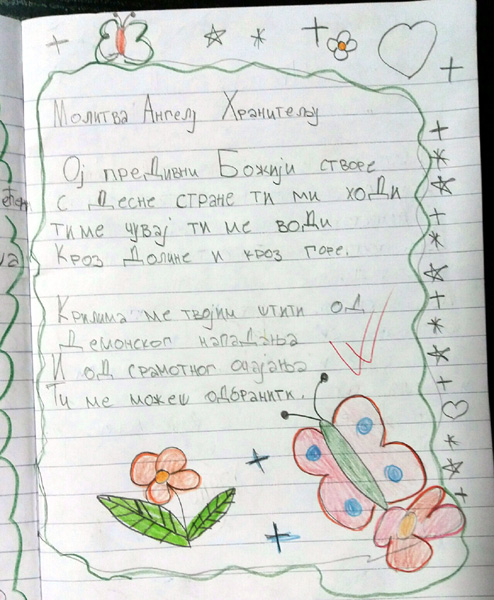 Молитва Ангелу Хранитељу
Ој предивни Божији створе
с Десне стране ти ми ходи
ти ме чувај ти ме води
Кроз Долине и кроз горе.
Крилима ме твојим штити од
Демонског нападања
И од срамотног очајања
Ти ме можеш одбранити.